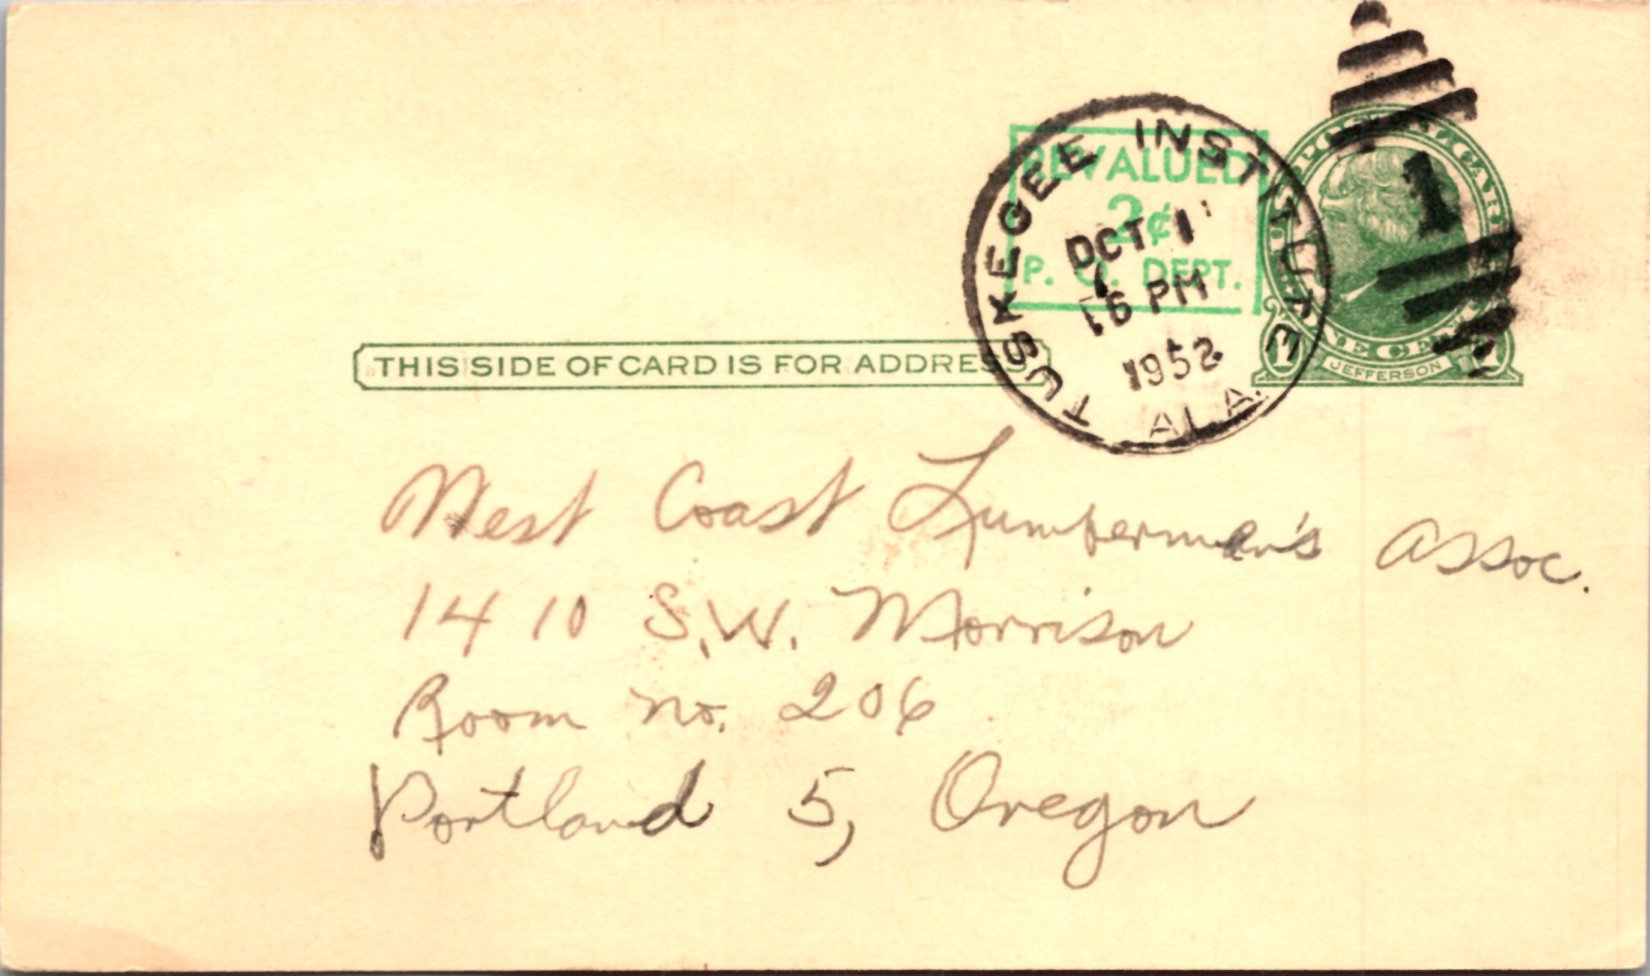 REVALUED
2¢
P. O. DEPT.
TUSKEGEE INSTITUTE
OCT 1
6 PM
1952
ALA.
1
POSTAL CARD
1 ONE CENT 1
JEFFERSON
THIS SIDE OF CARD IS FOR ADDRESS
West Coast Lumbermen's Assoc.
1410 S.W. Morrison
Room no. 206
Portland 5, Oregon